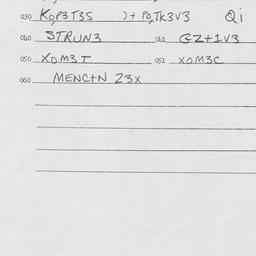 030 KOP3T3S )+ PO,TK3V3 Qi
040 STRUN3 041 GZ+1V3
050 XOM3T 051 XOM3C
060 MENC+N 23X